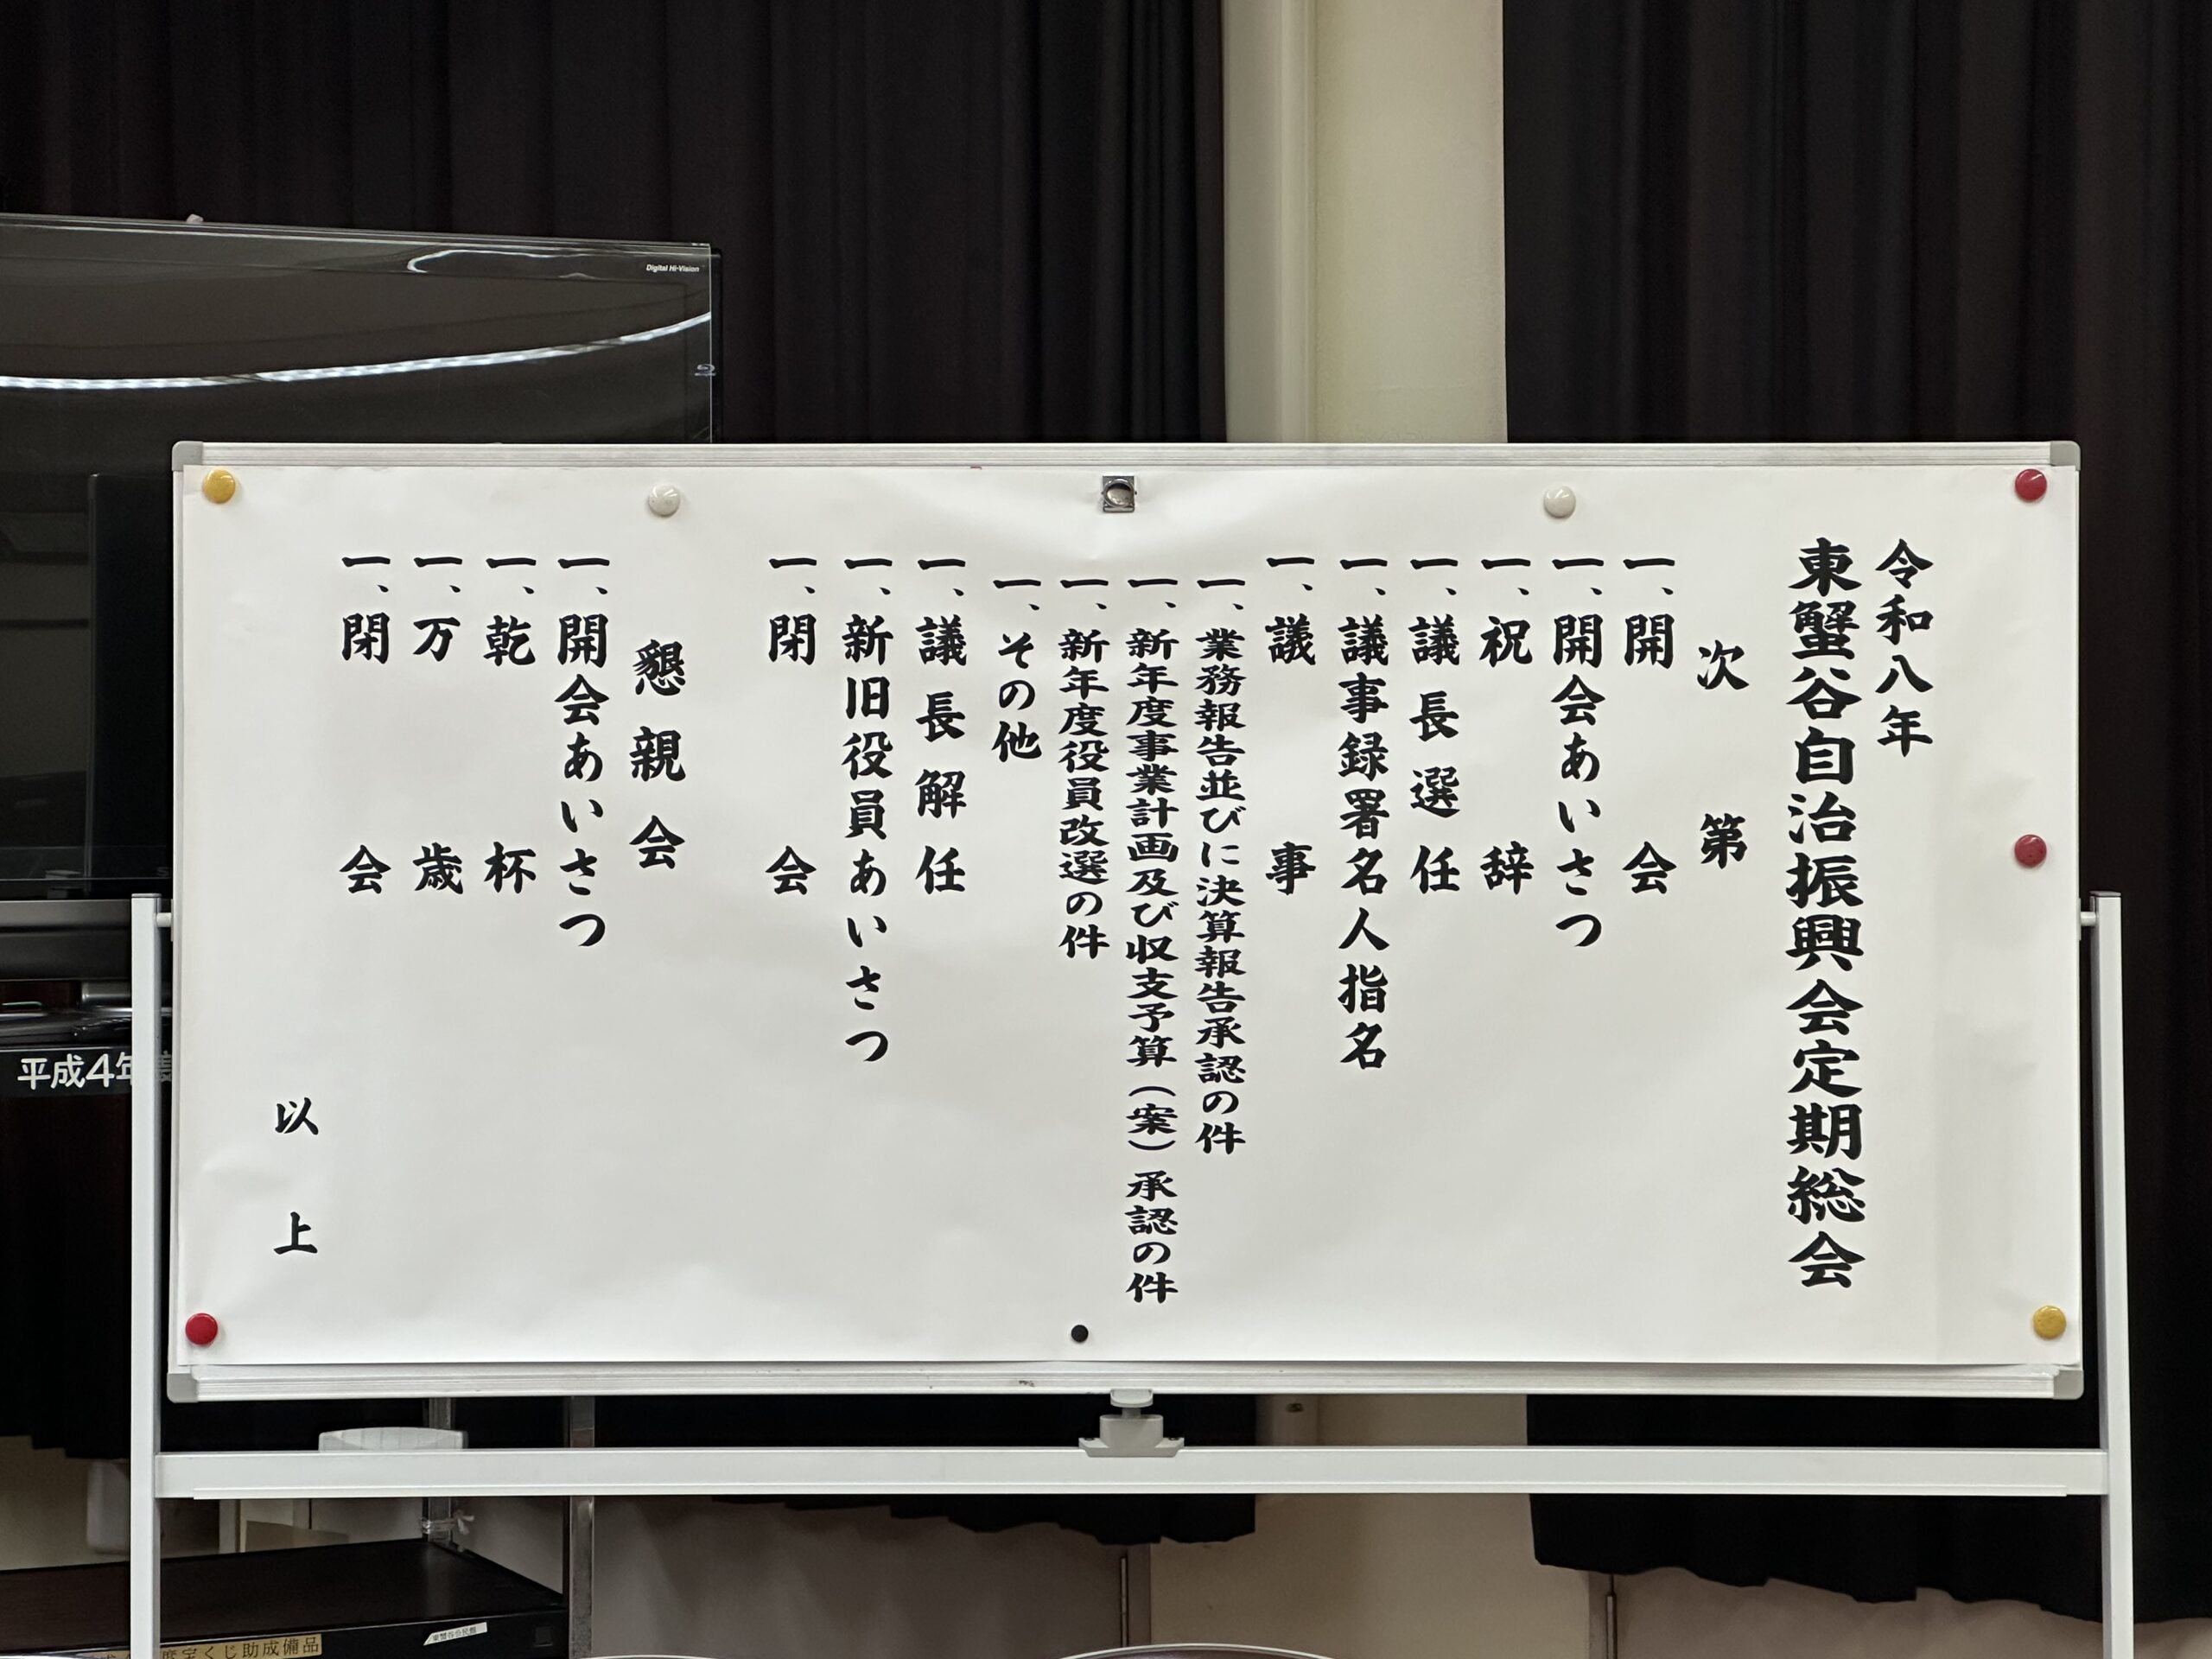 令和八年
東蟹谷自治振興会定期総会
次第
一、開会
一、開会あいさつ
一、祝辞
一、議長選任
一、議事録署名人指名
一、議事
一、業務報告並びに決算報告承認の件
一、新年度事業計画及び収支予算(案)承認の件
一、新年度役員改選の件
一、その他
一、議長解任
一、新旧役員あいさつ
一、閉会
懇親会
一、開会あいさつ
一、乾杯
一、万歳
一、閉会
以上
Digital Hi-Vision
平成4年
度宝くじ助成備品